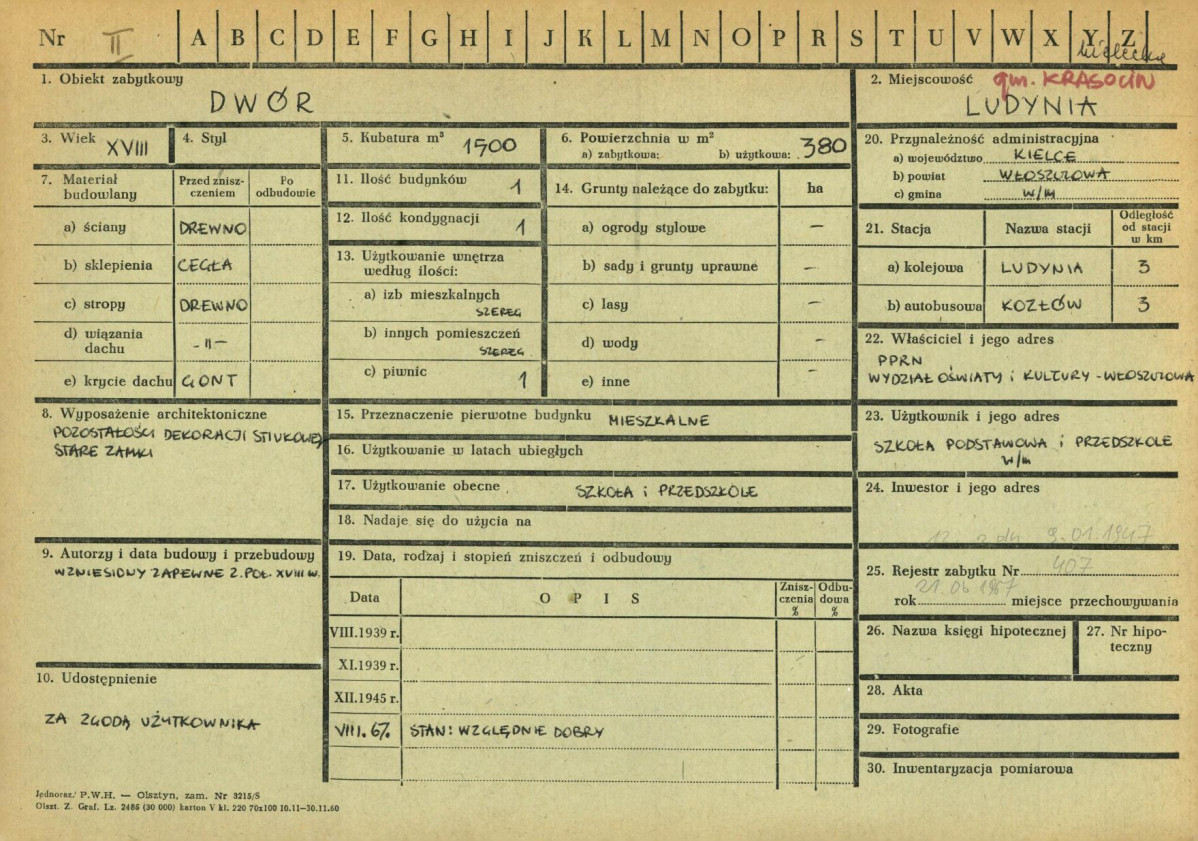 Nr II A B C D E F G H I J K L M N O P R S T U V W X Y Z
kieleckie
1. Obiekt zabytkowy
DWÓR
2. Miejscowość gm. KRASOCIN
LUDYNIA
3. Wiek XVIII
4. Styl
5. Kubatura m³ 1500
6. Powierzchnia w m²
a) zabytkowa: b) użytkowa: 380
7. Materiał budowlany
Przed zniszczeniem
Po odbudowie
a) ściany DREWNO
b) sklepienia CEGŁA
c) stropy DREWNO
d) wiązania dachu -"-
e) krycie dachu GONT
8. Wyposażenie architektoniczne
POZOSTAŁOŚCI DEKORACJI STIUKOWEJ,
STARE ZAMKI
9. Autorzy i data budowy i przebudowy
WZNIESIONY ZAPEWNE 2. POŁ. XVIII W.
10. Udostępnienie
ZA ZGODĄ UŻYTKOWNIKA
11. Ilość budynków 1
12. Ilość kondygnacji 1
13. Użytkowanie wnętrza
według ilości:
a) izb mieszkalnych
SZEREG
b) innych pomieszczeń
SZEREG
c) piwnic 1
14. Grunty należące do zabytku: ha
a) ogrody stylowe –
b) sady i grunty uprawne –
c) lasy –
d) wody –
e) inne
15. Przeznaczenie pierwotne budynku MIESZKALNE
16. Użytkowanie w latach ubiegłych
17. Użytkowanie obecne SZKOŁA i PRZEDSZKOLE
18. Nadaje się do użycia na
19. Data, rodzaj i stopień zniszczeń i odbudowy
Data
OPIS
Zniszczenia %
Odbudowa %
VIII.1939 r.
XI.1939 r.
XII.1945 r.
VIII. 67. STAN: WZGLĘDNIE DOBRY
20. Przynależność administracyjna
a) województwo KIELCE
b) powiat WŁOSZCZOWA
c) gmina w/m
21. Stacja
Nazwa stacji
Odległość od stacji w km
a) kolejowa LUDYNIA 3
b) autobusowa KOZŁÓW 3
22. Właściciel i jego adres
PPRN
WYDZIAŁ OŚWIATY i KULTURY - WŁOSZCZOWA
23. Użytkownik i jego adres
SZKOŁA PODSTAWOWA i PRZEDSZKOLE
w/m
24. Inwestor i jego adres
z dn 9.01.1947
25. Rejestr zabytku Nr 407
rok 21.06 1967 miejsce przechowywania
26. Nazwa księgi hipotecznej
27. Nr hipoteczny
28. Akta
29. Fotografie
30. Inwentaryzacja pomiarowa
Jednoraz. P.W.H. — Olsztyn, zam. Nr 3215/S
Olszt. Z. Graf. Lz. 2486 (30 000) karton V kl. 220 70x100 10.11—30.11.60